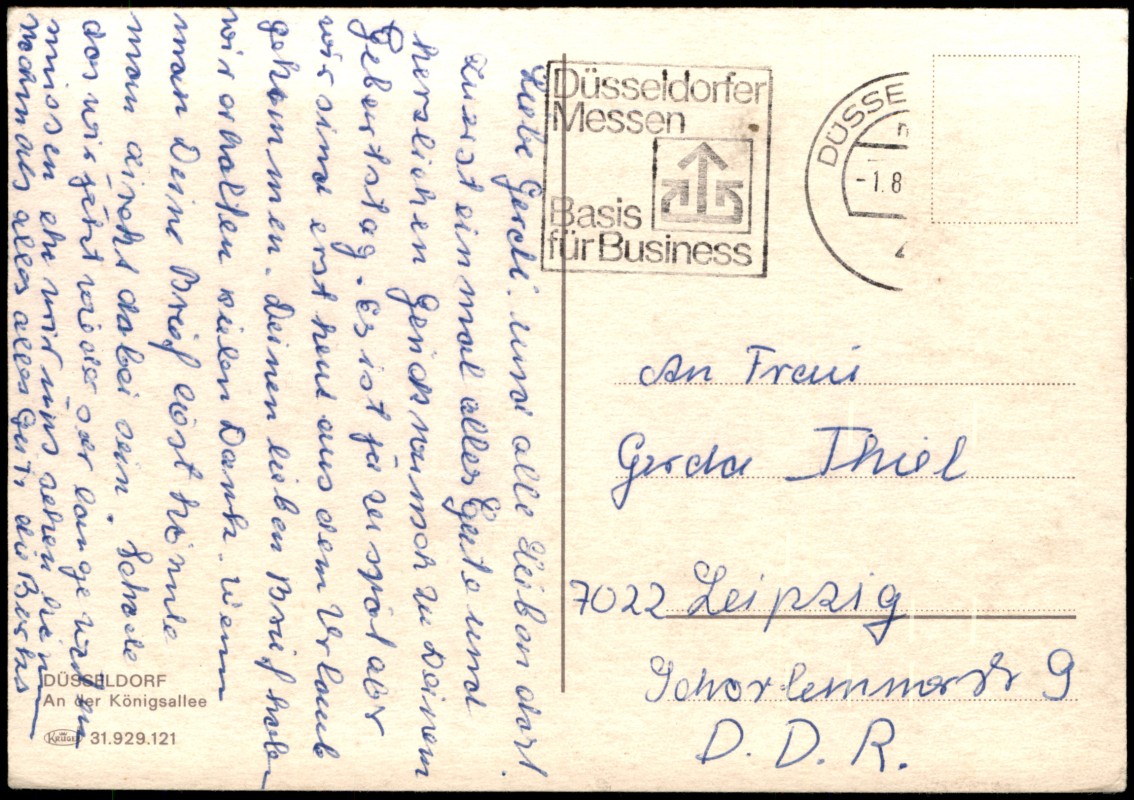 Liebe Gerdi. unsi alle Lieben dort.
Zuerst einmal alles Gute und
herzlichen Genickwunsch zu Deinem
Gebertstag. Es ist ja zu spät aber
wir sind erst heut aus dem Urlaub
gekommen. Deinen lieben Brief haben
wir erhalten vielen Dank. Wenn
man Deine Brief löst könnte
man direkt dabei sein. Schade
das wir jetzt wieder so lange warten
müssen ehe wir uns sehen
nochmals alles alles Gute die
Düsseldorfer
Messen
Basis
für Business
DÜSSE
-1.8
An Frau
Gerda Thiel
7022 Leipzig
Schorlemmerstr 9
D. D. R.
DÜSSELDORF
An der Königsallee
KRÜGER 31.929.121